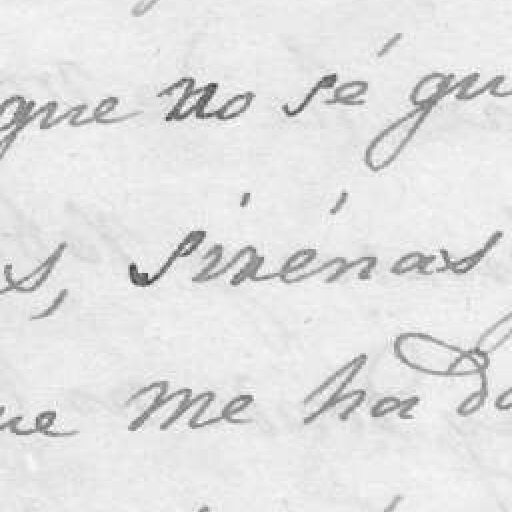 que no sé qu
s, sirénas
ue me ha da